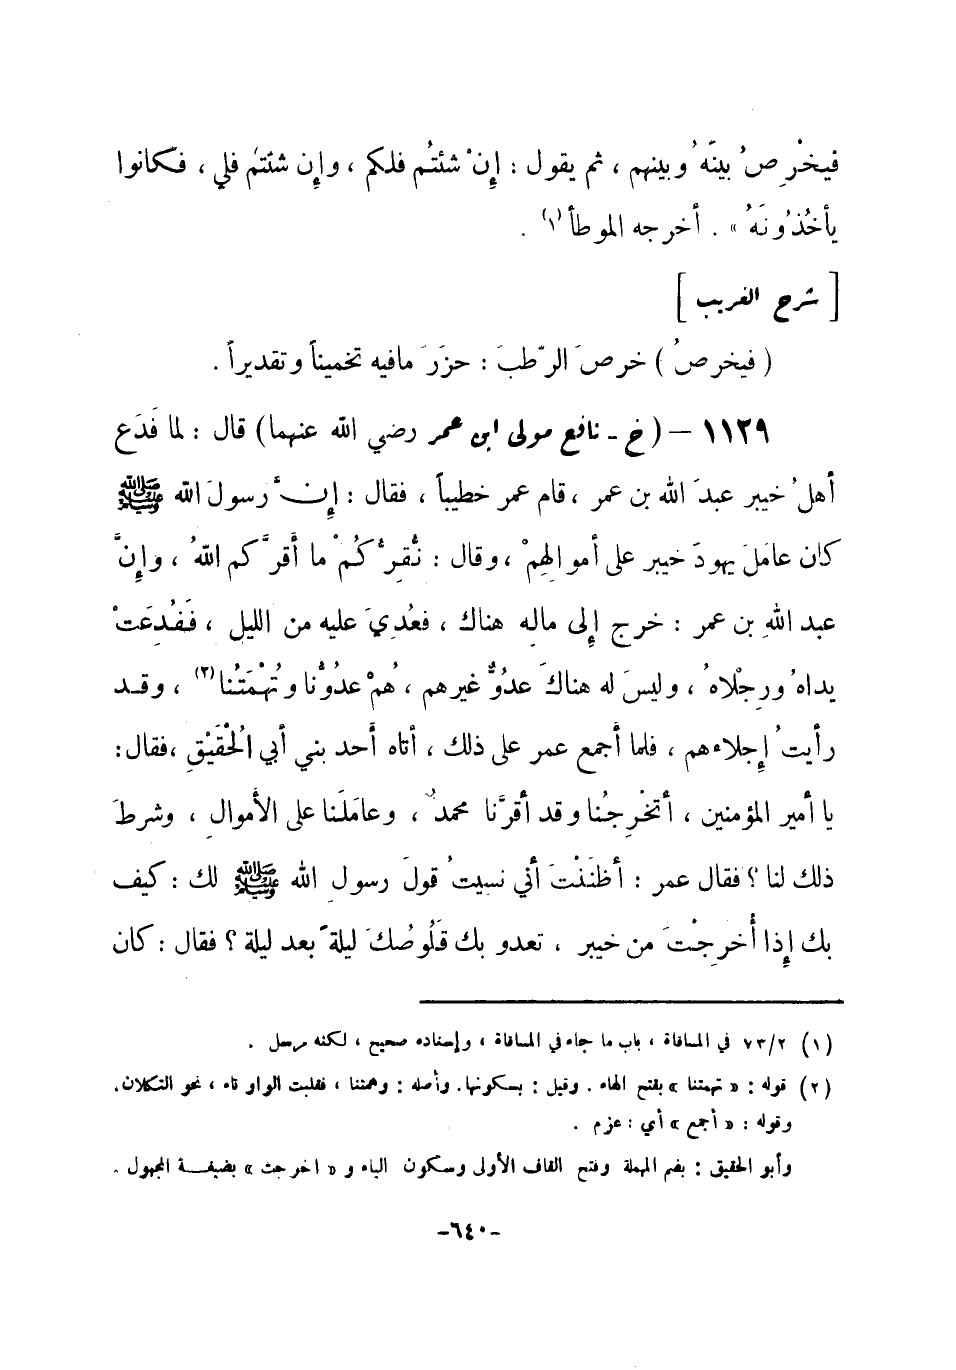 فيخْرِصُ بينَهُ وبينهم ، ثم يقول : إِنْ شئتُم فلكم ، وإِن شئتم فلي ، فكانوا
يأخُذُونَهُ » . أخرجه الموطأ (١) .
[ شرح الغريب ]
( فيخرصُ ) خرصَ الرّطبَ : حزَرَ مافيه تخميناً وتقديراً .
١١٢٩ – ( خ ـ نافع مولى ابن عمر رضي الله عنهما) قال : لما فَدَع
أهلُ خيبر عبدَ الله بن عمر ، قام عمر خطيباً ، فقال : إِنَّ رسولَ الله ﷺ
كان عامَلَ يهودَ خيبر على أموالِهِمْ ، وقال : نُقِرُّكُمْ ما أَقرَّكم اللهُ ، وإِنَّ
عبد اللهِ بن عمر : خرج إِلى مالِه هناك ، فعُدِيَ عليه من الليل ، فَفُدِعَتْ
يداهُ ورِجْلاهُ ، وليسَ له هناكَ عدُوٌّ غيرهم ، هُمْ عدُوُّنا وتُهْمَتُنا (٢) ، وقد
رأيتُ إِجلاءهم ، فلما أجمع عمر على ذلك ، أتاه أَحد بني أبي الحُقَيْقِ ،فقال:
يا أمير المؤمنين ، أَتخْرِجُنا وقد أَقرَّنا محمدٌ ، وعامَلَنا على الأموالِ ، وشرطَ
ذلك لنا ؟ فقال عمر : أظَنَنْتَ أني نسيتُ قولَ رسولِ الله ﷺ لك : كيف
بك إِذا أُخرِجْتَ من خيبر ، تعدو بك قَلُوصُكَ ليلةً بعد ليلة ؟ فقال : كان
(١) ٧٣/٢ في المساقاة ، باب ما جاء في المساقاة ، وإسناده صحيح ، لكنه مرسل .
(٢) قوله : « تهمتنا » بفتح الهاء . وقيل : بسكونها. وأصله : وهمتنا ، فقلبت الواو تاء ، نحو التكلان.
وقوله : « أجمع » أي : عزم .
وأبو الحقيق : بضم المهملة وفتح القاف الأولى وسكون الياء و « اخرجت » بضيغة المجهول .
-٦٤٠-